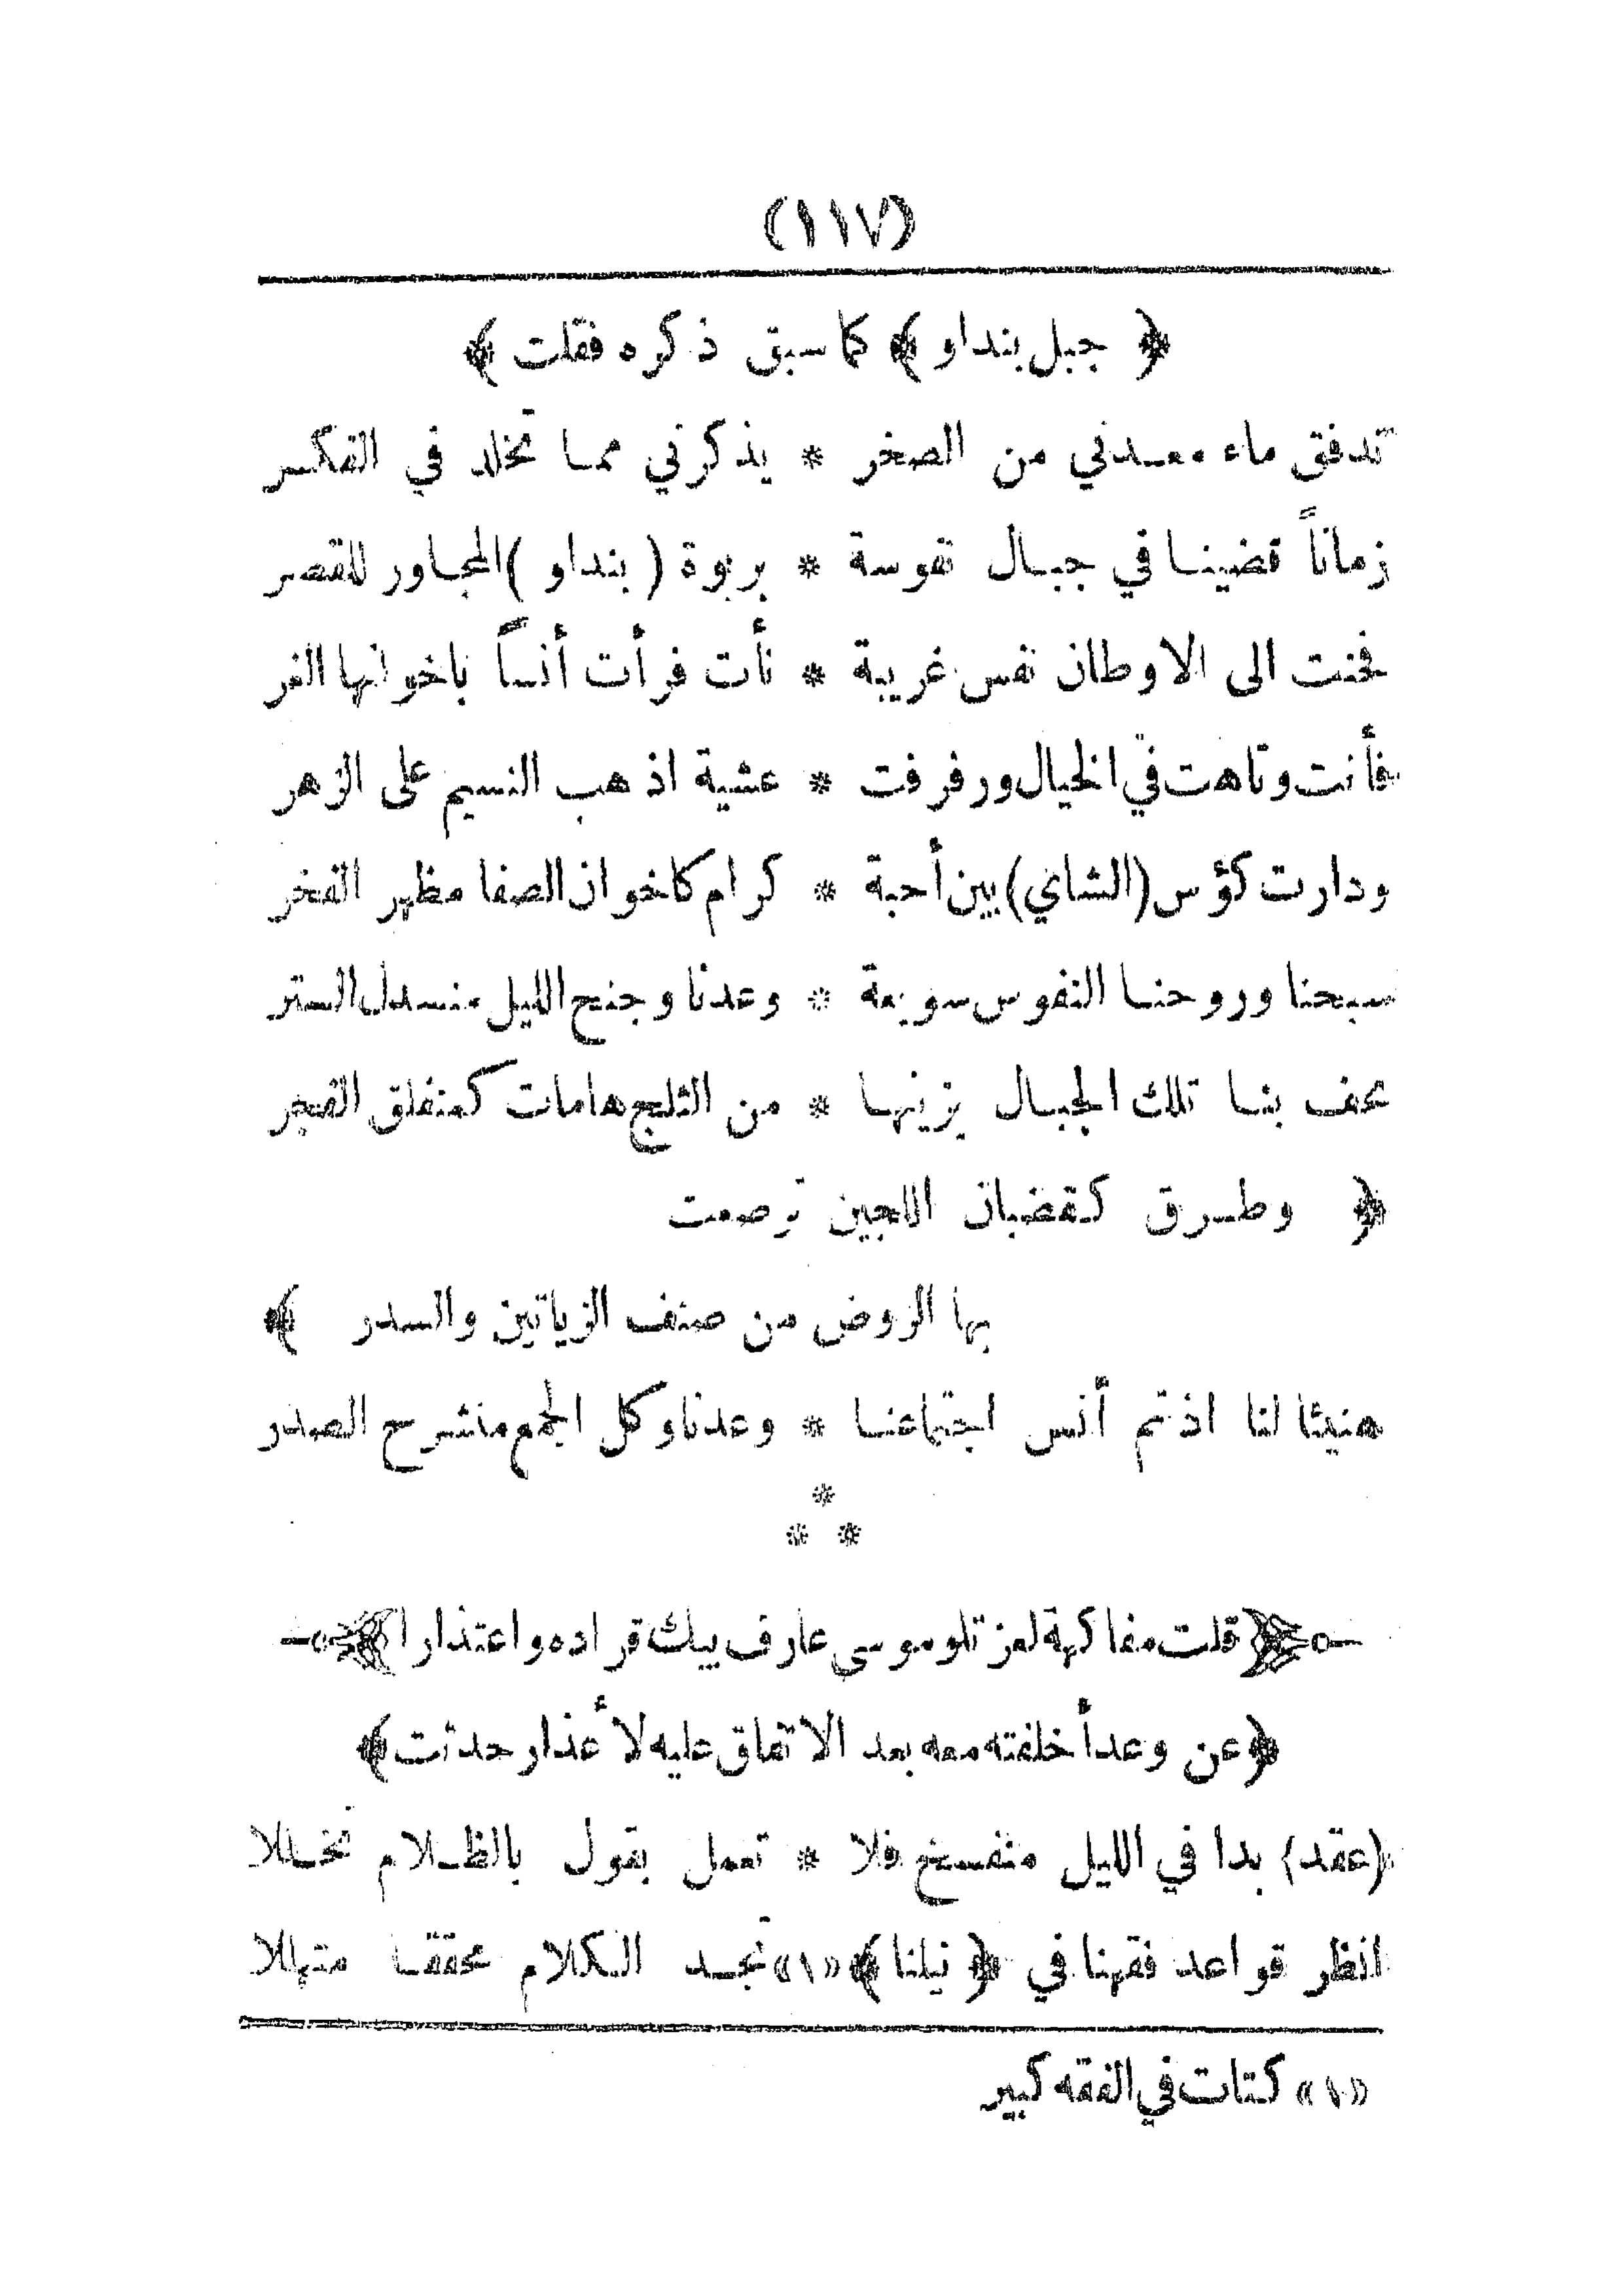 (١١٧)
﴿ جبل بنداو ﴾ كما سبق ذكره فقلت ﴾
تدفق ماء معدني من الصخر * يذكرني مما تخلد في الفكر
زماناً قضينا في جبال نفوسة * بربوة ( بنداو ) المجاور للقصر
فحنت الى الاوطان نفس غريبة * نأت فرأت أنساً باخوانها الغر
فأنت وتاهت في الخيال ورفرفت * عشية اذ هب النسيم على الزهر
ودارت كؤس (الشاي) بين أحبة * كرام كاخوان الصفا مظهر الفخر
سبحنا وروحنا النفوس سويعة * وعدنا وجنح الليل منسدل الستر
تحف بنا تلك الجبال يزينها * من الثلج هامات كمنفلق الفجر
﴿ وطرق كقضبان اللجين ترصعت
بها الروض من صنف الزياتين والسدر ﴾
هنيئا لنا اذ تم أنس اجتماعنا * وعدنا وكل الجمع منشرح الصدر
*
* *
﴿قلت مفاكهة لعزتلو موسى عارف بيك قراده واعتذارا﴾
﴿عن وعد أخلفته معه بعد الاتفاق عليه لأعذار حدثت﴾
(عقد) بدا في الليل منفسخ فلا * تعمل بقول بالظلام تخللا
انظر قواعد فقهنا في ﴿ نيلنا ﴾ «١» تجد الكلام محققا متهللا
«١» كتات في الفقه كبير